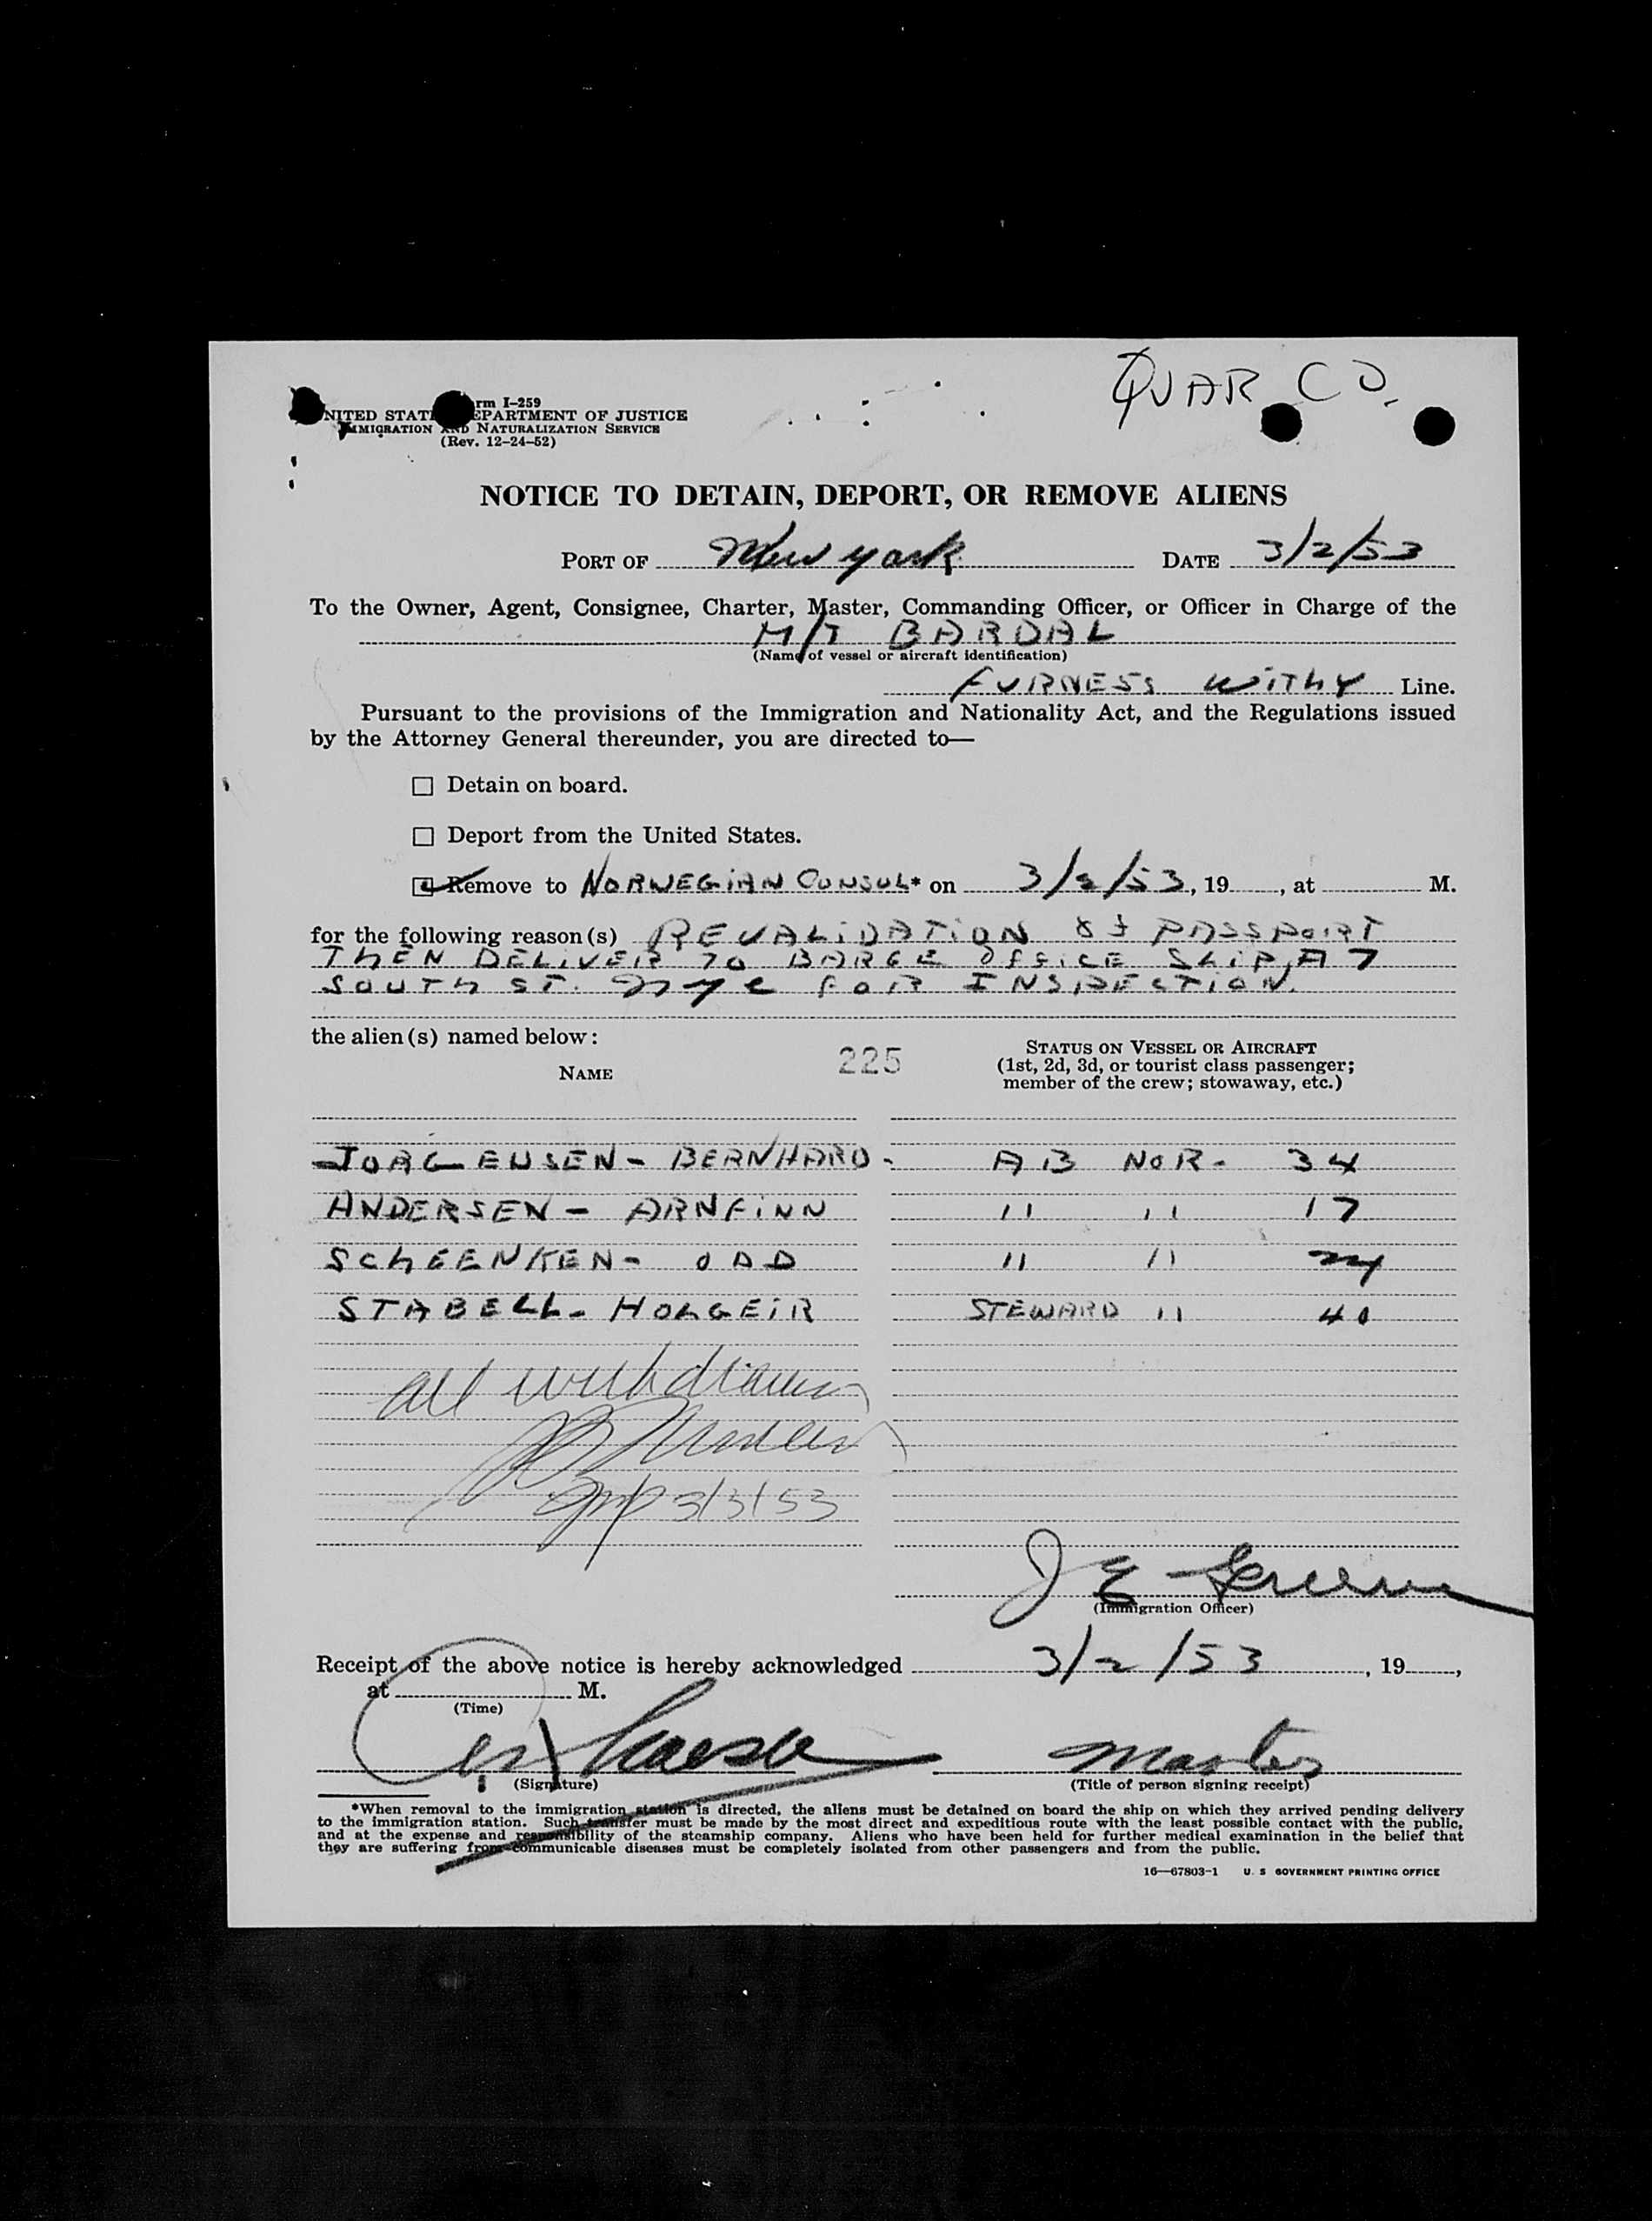 QUAR CO.
rm I-259
NITED STAT EPARTMENT OF JUSTICE
IMMIGRATION AND NATURALIZATION SERVICE
(Rev. 12-24-52)
NOTICE TO DETAIN, DEPORT, OR REMOVE ALIENS
PORT OF New York DATE 3/2/53
To the Owner, Agent, Consignee, Charter, Master, Commanding Officer, or Officer in Charge of the
M/T BARDAL
(Name of vessel or aircraft identification)
FURNESS WITHY Line.
Pursuant to the provisions of the Immigration and Nationality Act, and the Regulations issued
by the Attorney General thereunder, you are directed to—
Detain on board.
Deport from the United States.
Remove to NORWEGIAN CONSUL* on 3/2/53, 19 , at M.
for the following reason(s) REVALIDATION OF PASSPORT
THEN DELIVER TO BARGE OFFICE SLIP, A7
SOUTH ST. NYC FOR INSPECTION.
the alien(s) named below:
225
NAME
STATUS ON VESSEL OR AIRCRAFT
(1st, 2d, 3d, or tourist class passenger;
member of the crew; stowaway, etc.)
JORGENSEN - BERNHARD - AB NOR - 34
ANDERSEN - ARNFINN " " 17
SCHEENKEN - ODD " "
STABELL - HOLGEIR STEWARD " 40
all withdrawn
3/3/53
J E
(Immigration Officer)
Receipt of the above notice is hereby acknowledged 3/2/53, 19 ,
at M.
(Time)
Master
(Signature) (Title of person signing receipt)
*When removal to the immigration station is directed, the aliens must be detained on board the ship on which they arrived pending delivery
to the immigration station. Such transfer must be made by the most direct and expeditious route with the least possible contact with the public,
and at the expense and responsibility of the steamship company. Aliens who have been held for further medical examination in the belief that
they are suffering from communicable diseases must be completely isolated from other passengers and from the public.
16—67803-1 U. S GOVERNMENT PRINTING OFFICE